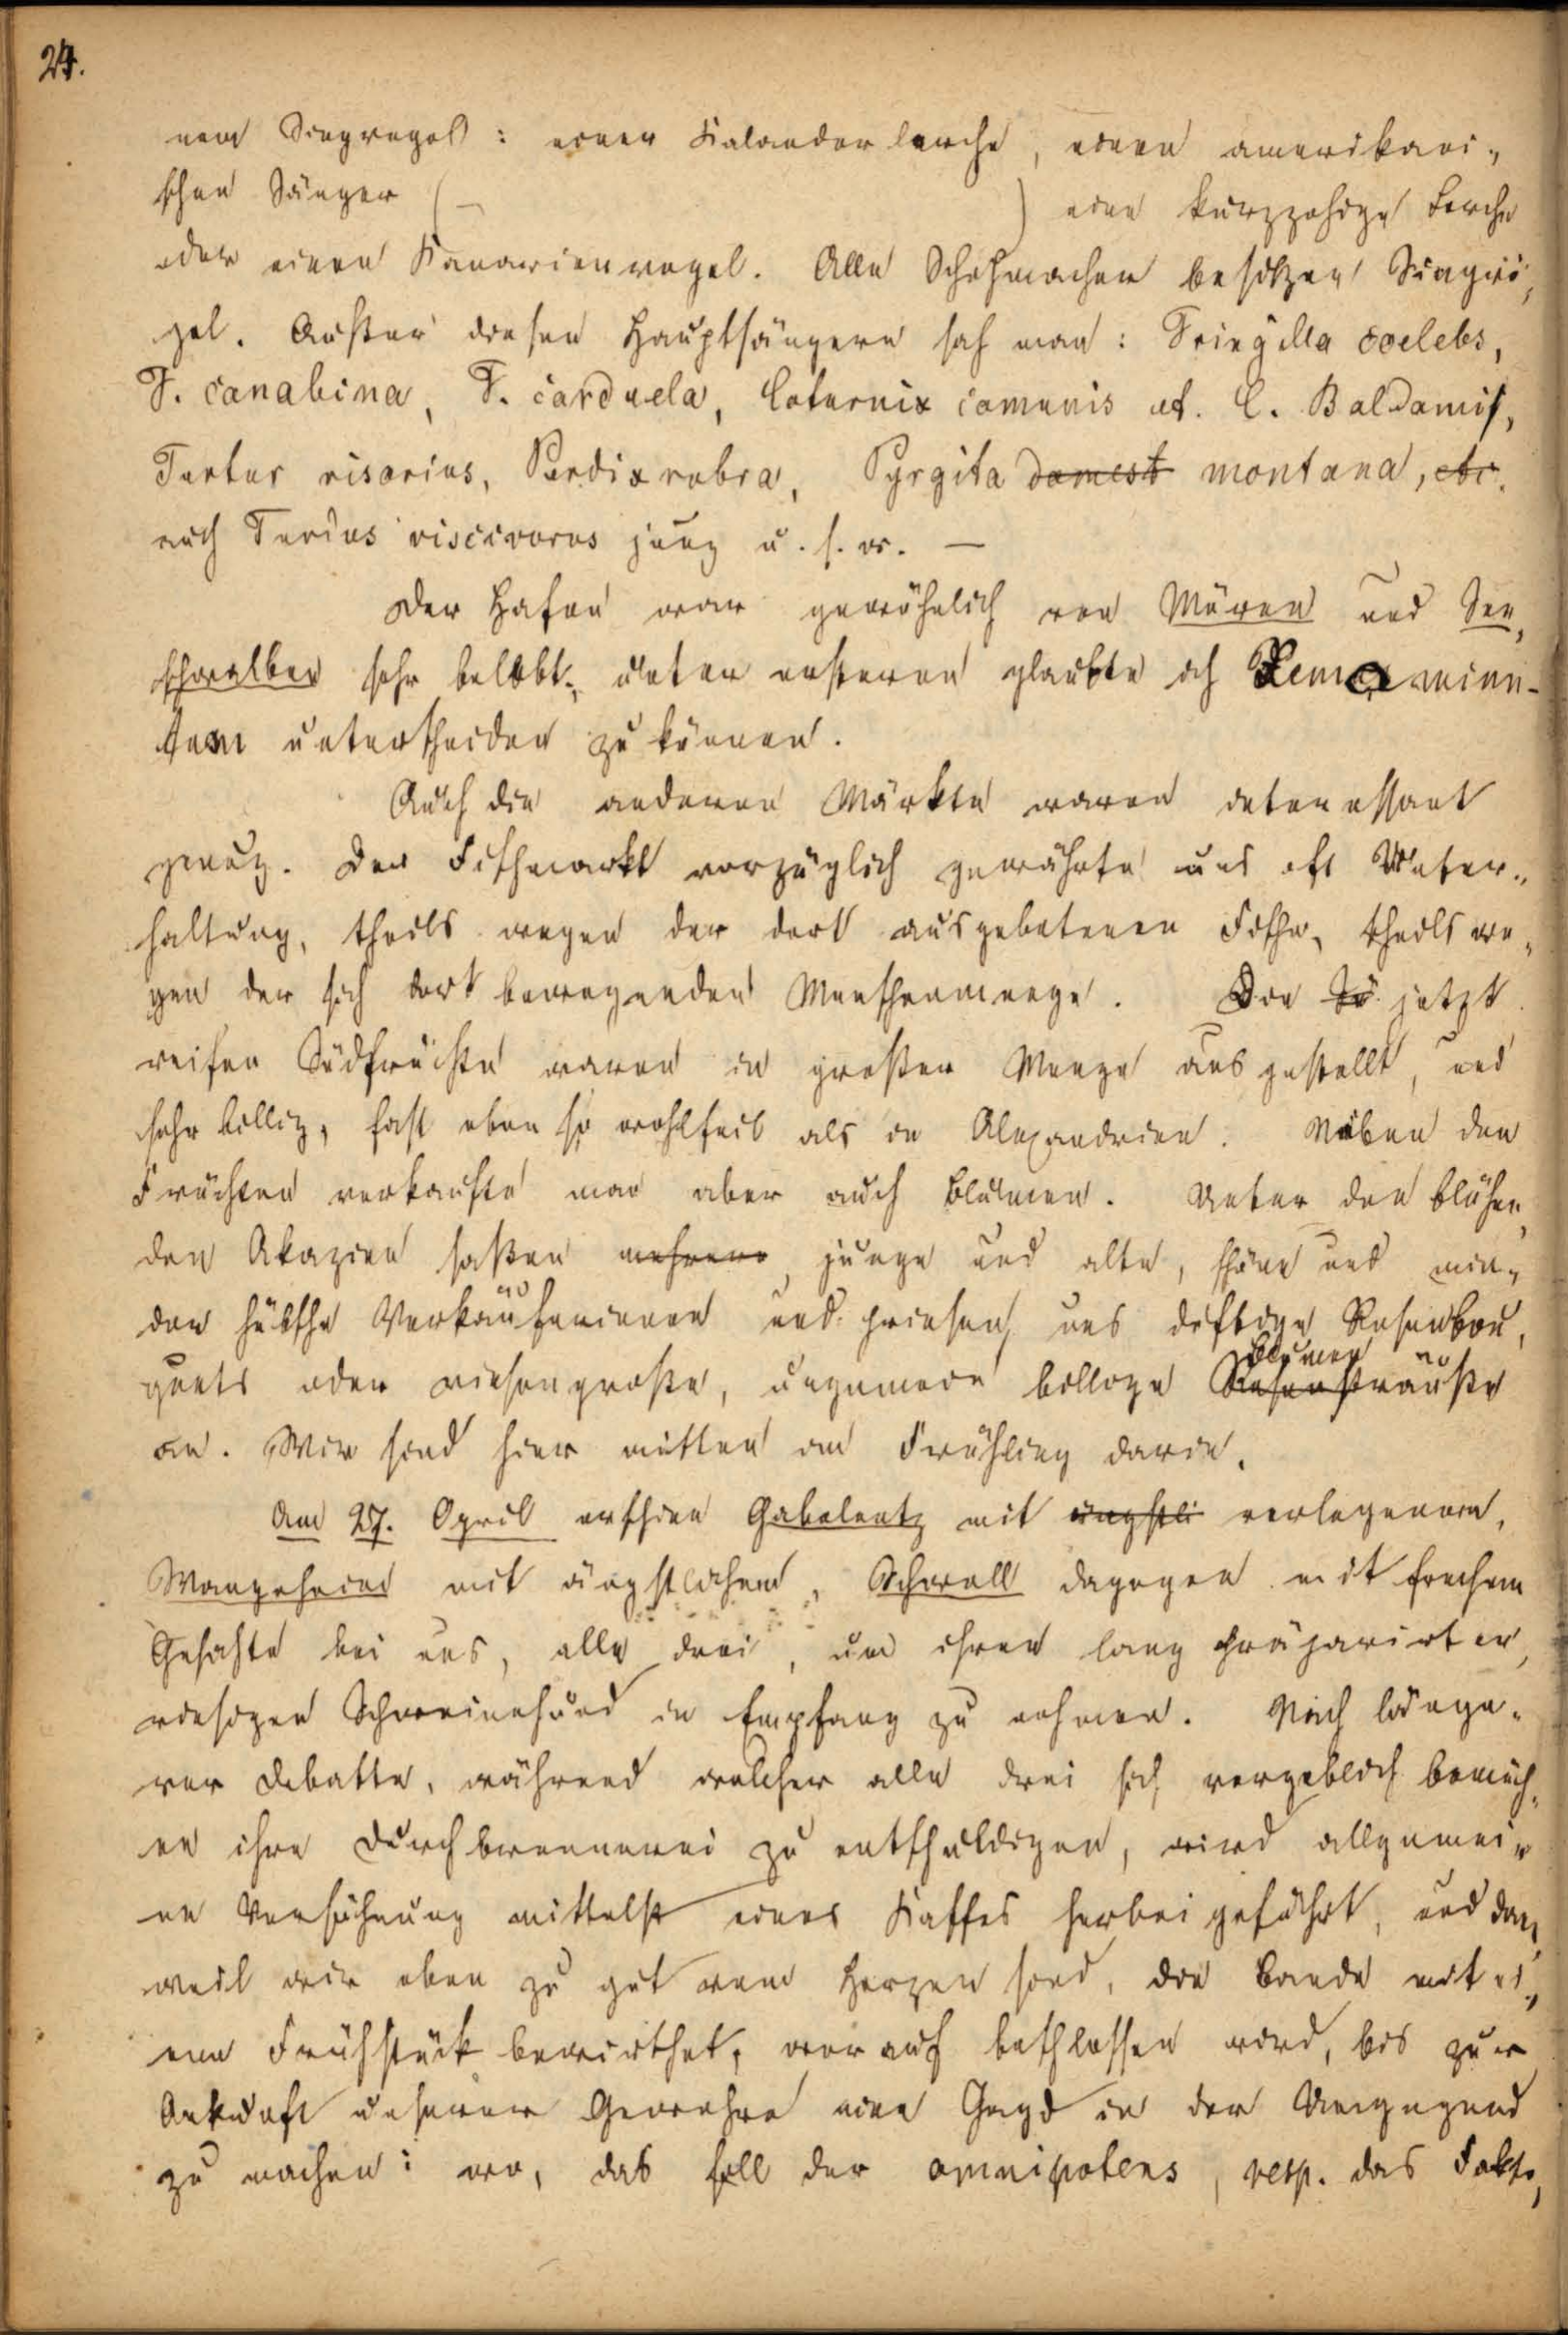 24.
nem Singvogel: einer Kalanderlerche, einem amerikani-
schen Sänger (– ) eine kurzzehige Lerche
oder einen Kanarienvogel. Alle Schuhmacher besitzen Singvö-
gel. Außer diesen Hauptsängern sah man: Fringilla coelebs,
F. canabina, F. carduela, Coturnix comunis et. C. Baldamis,
Turtur risorius, Perdix rubra, Pyrgita domest montana, etc.
auch Turdus viscivorus jung u. s. w. —
Der Hafen war gewöhnlich von Möven und See-
schwalben sehr belebt; unter ersteren glaubte ich Lema minu-
tum unterscheiden zu können.
Auch die anderen Märkte waren interessant
genug. Der Fischmarkt vorzüglich gewährte uns oft Unter-
haltung, theils wegen der dort ausgebotenen Fische, theils we-
gen der sich dort bewegenden Menschenmenge. Die Sü jetzt
reifen Südfrüchte waren in großer Menge ausgestellt, und
sehr billig, fast eben so wohlfeil als in Alexandrien. Neben den
Früchten verkaufte man aber auch Blumen. Unter den blühen-
den Akazien saßen mehrere, junge und alte, schöne und min-
der hübsche Verkäuferinnen und priesen uns duftige Rosenbou-
quets oder riesengroße, ungemein billige Rosensträuße
Blumen
an. Wir sind hier mitten im Frühling darin.
Am 27. April erschien Gabelentz mit ängstli verlegenem,
Wangenheim mit ängstlichem, Schwall dagegen mit frechem
Gesichte bei uns, alle drei, um ihren lang präparirten,
riesigen Schweinehund in Empfang zu nehmen. Nach länge-
rer Debatte, während welcher alle drei sich vergeblich bemüh-
en ihre Durchbrennerei zu entschuldigen, wird allgemei-
ne Versöhnung mittelst eines Kaffes herbei geführt, und dan,
weil wir eben zu gut von Herzen sind, die Bande mit ei-
nem Frühstück bewirthet, worauf beschlossen wird, bis zur
Ankunft unserer Gewehre eine Jagd in der Umgegend
zu machen: wo, das soll der omnipotens, resp. das Fakto-